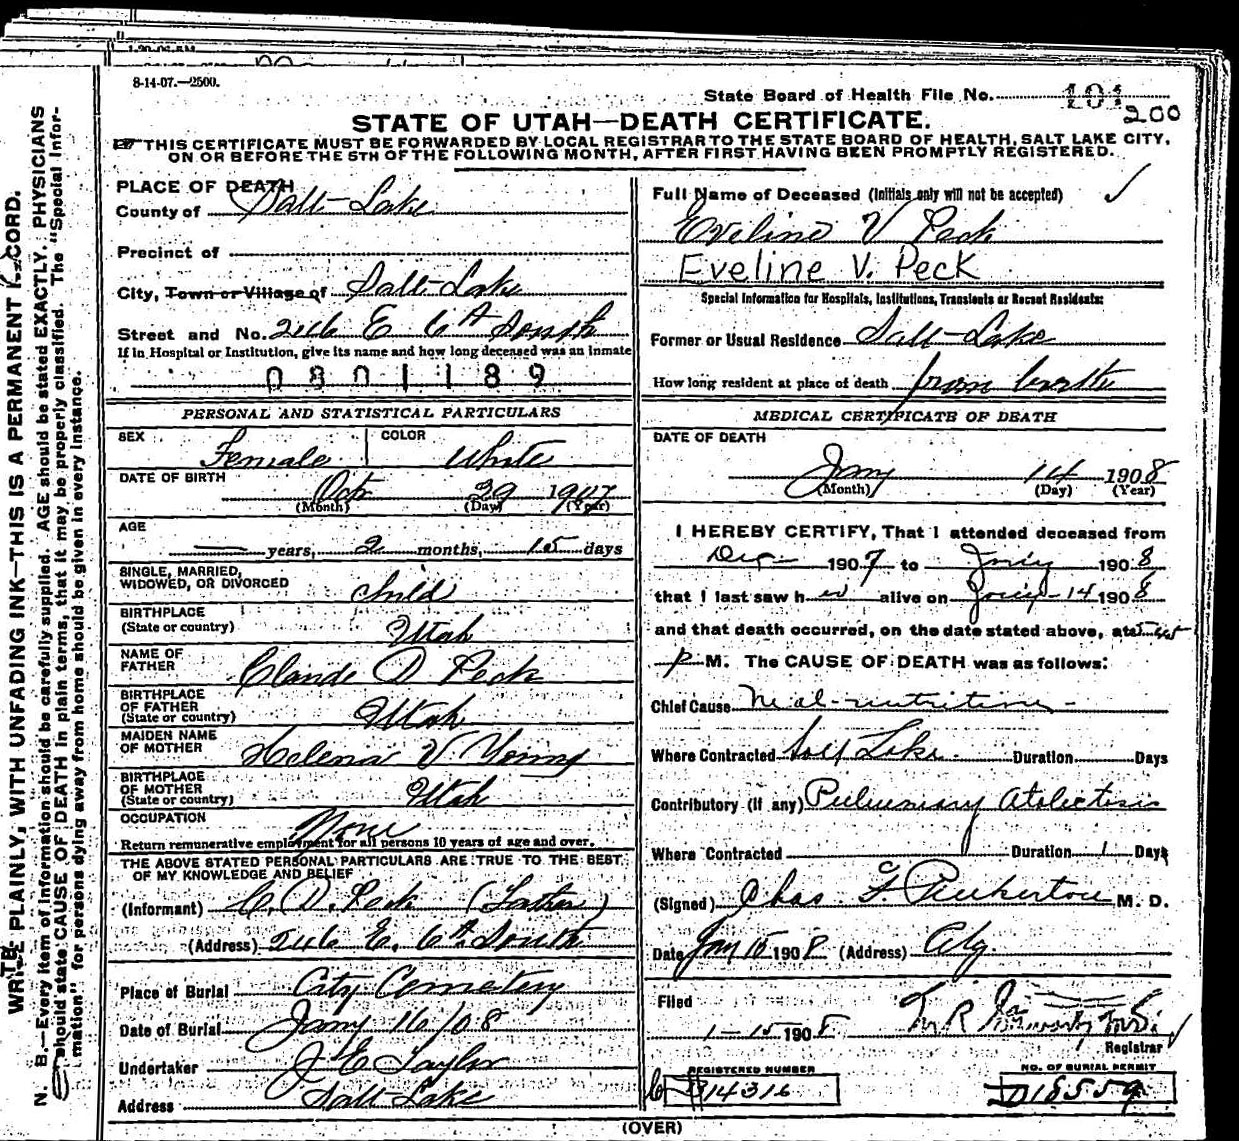 8-14-07.—2500.
State Board of Health File No. 101
200
STATE OF UTAH—DEATH CERTIFICATE.
THIS CERTIFICATE MUST BE FORWARDED BY LOCAL REGISTRAR TO THE STATE BOARD OF HEALTH, SALT LAKE CITY,
ON OR BEFORE THE 5TH OF THE FOLLOWING MONTH, AFTER FIRST HAVING BEEN PROMPTLY REGISTERED.
PLACE OF DEATH
County of Salt Lake
Precinct of
City, Town or Village of Salt Lake
Street and No. 246 E 6th South
If in Hospital or Institution, give its name and how long deceased was an inmate
0801189
PERSONAL AND STATISTICAL PARTICULARS
SEX Female COLOR White
DATE OF BIRTH Oct 29 1907
(Month) (Day) (Year)
AGE
— years, 2 months, 15 days
SINGLE, MARRIED,
WIDOWED, OR DIVORCED child
BIRTHPLACE
(State or country) Utah
NAME OF
FATHER Claude D Peck
BIRTHPLACE
OF FATHER
(State or country) Utah
MAIDEN NAME
OF MOTHER Helena V Young
BIRTHPLACE
OF MOTHER
(State or country) Utah
OCCUPATION None
Return remunerative employment for all persons 10 years of age and over.
THE ABOVE STATED PERSONAL PARTICULARS ARE TRUE TO THE BEST
OF MY KNOWLEDGE AND BELIEF
(Informant) C. D. Peck (Father)
(Address) 246 E. 6th South
Place of Burial City Cemetery
Date of Burial Jany 16/08
Undertaker J E Taylor
Address Salt Lake
Full Name of Deceased (Initials only will not be accepted)
Eveline V Peck
Eveline V. Peck
Special Information for Hospitals, Institutions, Transients or Recent Residents:
Former or Usual Residence Salt Lake
How long resident at place of death from birth
MEDICAL CERTIFICATE OF DEATH
DATE OF DEATH
Jany 14 1908
(Month) (Day) (Year)
I HEREBY CERTIFY, That I attended deceased from
Dec — 1907 to Jany 1908
that I last saw her alive on Jany-14 1908
and that death occurred, on the date stated above, at 5-45
P M. The CAUSE OF DEATH was as follows:
Chief Cause Mal-nutrition -
Where Contracted Salt Lake Duration Days
Contributory (if any) Pulmonary Atelectasis
Where Contracted Duration 1 Days
(Signed) Chas F. Pinkerton M. D.
Date Jan 15 1908 (Address) City.
Filed
1-15-1908
Registrar
REGISTERED NUMBER
14316
NO. OF BURIAL PERMIT
D18559
(OVER)
WRITE PLAINLY, WITH UNFADING INK—THIS IS A PERMANENT RECORD.
N. B.—Every item of information should be carefully supplied. AGE should be stated EXACTLY. PHYSICIANS
should state CAUSE OF DEATH in plain terms, that it may be properly classified. The "Special Infor-
mation" for persons dying away from home should be given in every instance.